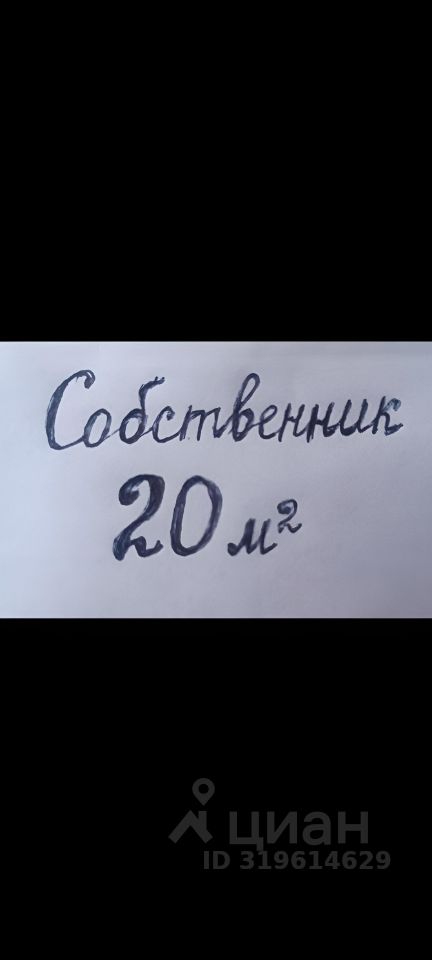 Собственник
20 м²
циан
ID 319614629